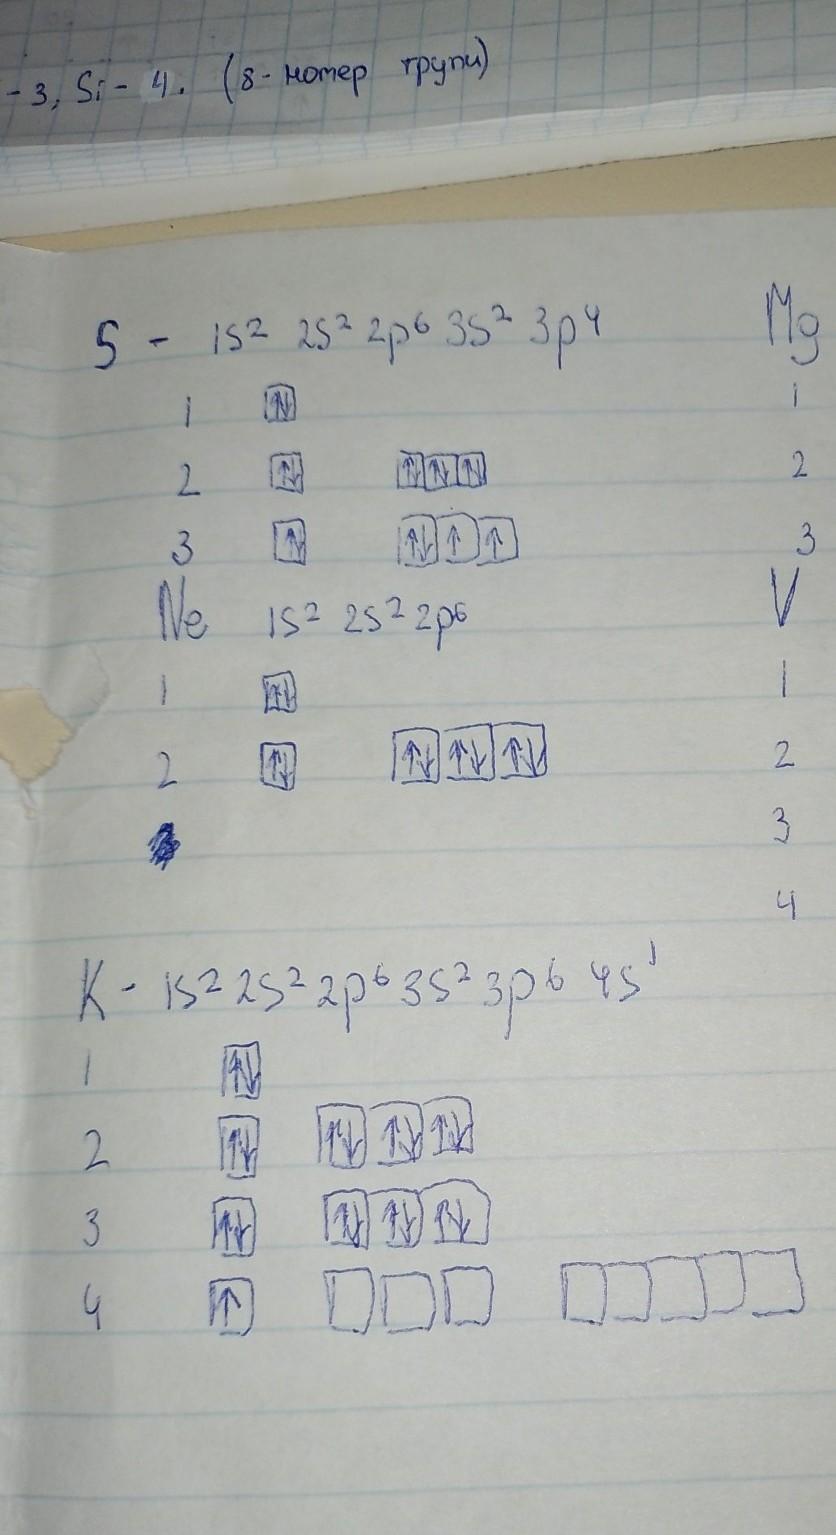 -3, Si - 4. (8 - номер групи)
S - 1s² 2s² 2p⁶ 3s² 3p⁴
1 ↑↓
2 ↑↓ ↑↓ ↑↓ ↑↓
3 ↑↓ ↑↓ ↑ ↑
Ne 1s² 2s² 2p⁶
1 ↑↓
2 ↑↓ ↑↓ ↑↓ ↑↓
K - 1s² 2s² 2p⁶ 3s² 3p⁶ 4s¹
1 ↑↓
2 ↑↓ ↑↓ ↑↓ ↑↓
3 ↑↓ ↑↓ ↑↓ ↑↓
4 ↑
Mg
1
2
3
V
1
2
3
4